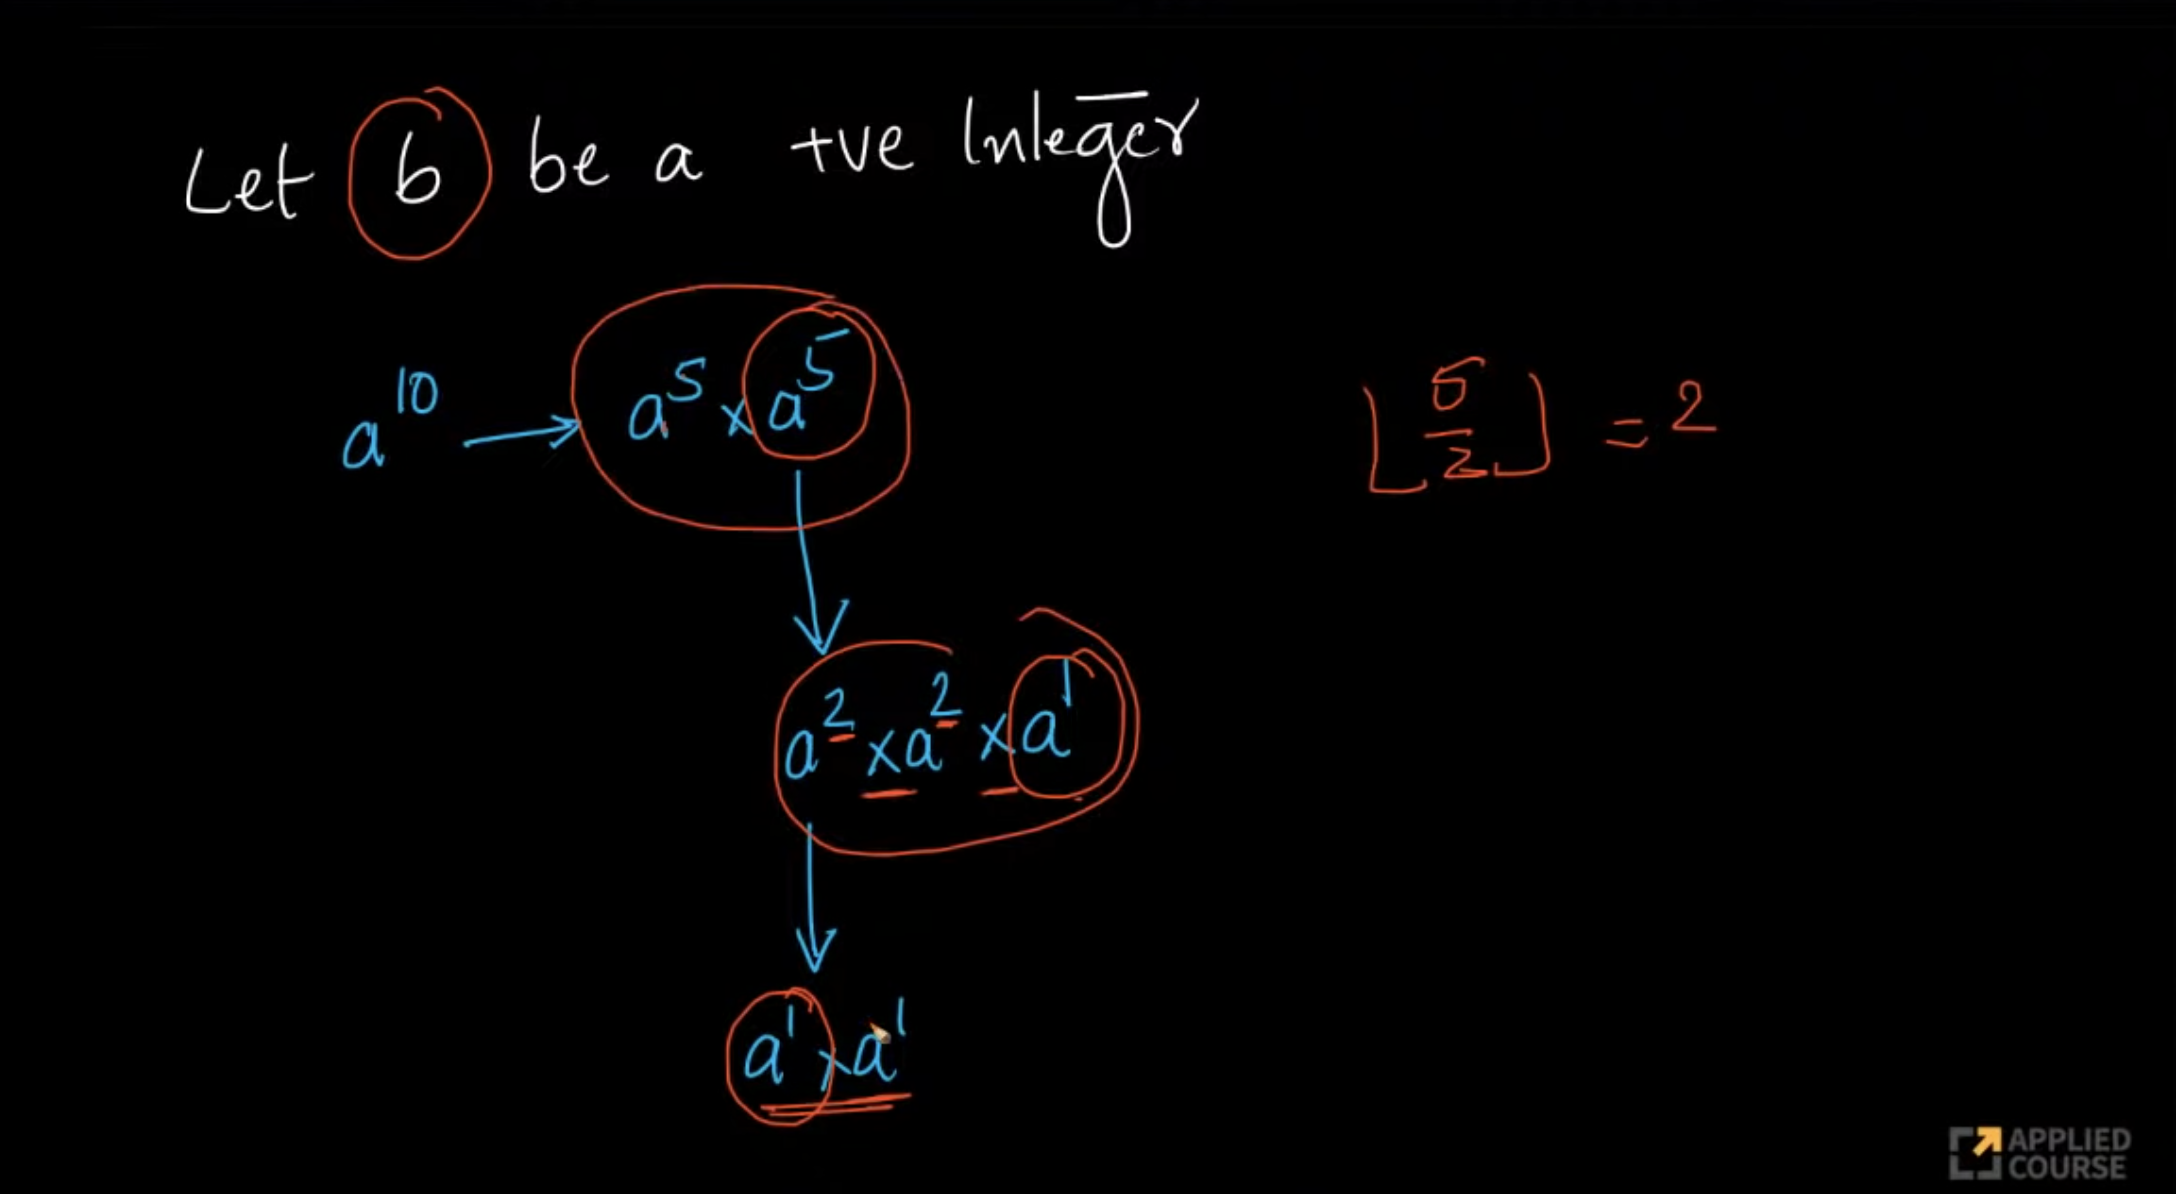 Let b be a +ve Integer
a¹⁰ → a⁵ × a⁵
⌊5/2⌋ = 2
a² × a² × a¹
a¹ × a¹
APPLIED
COURSE